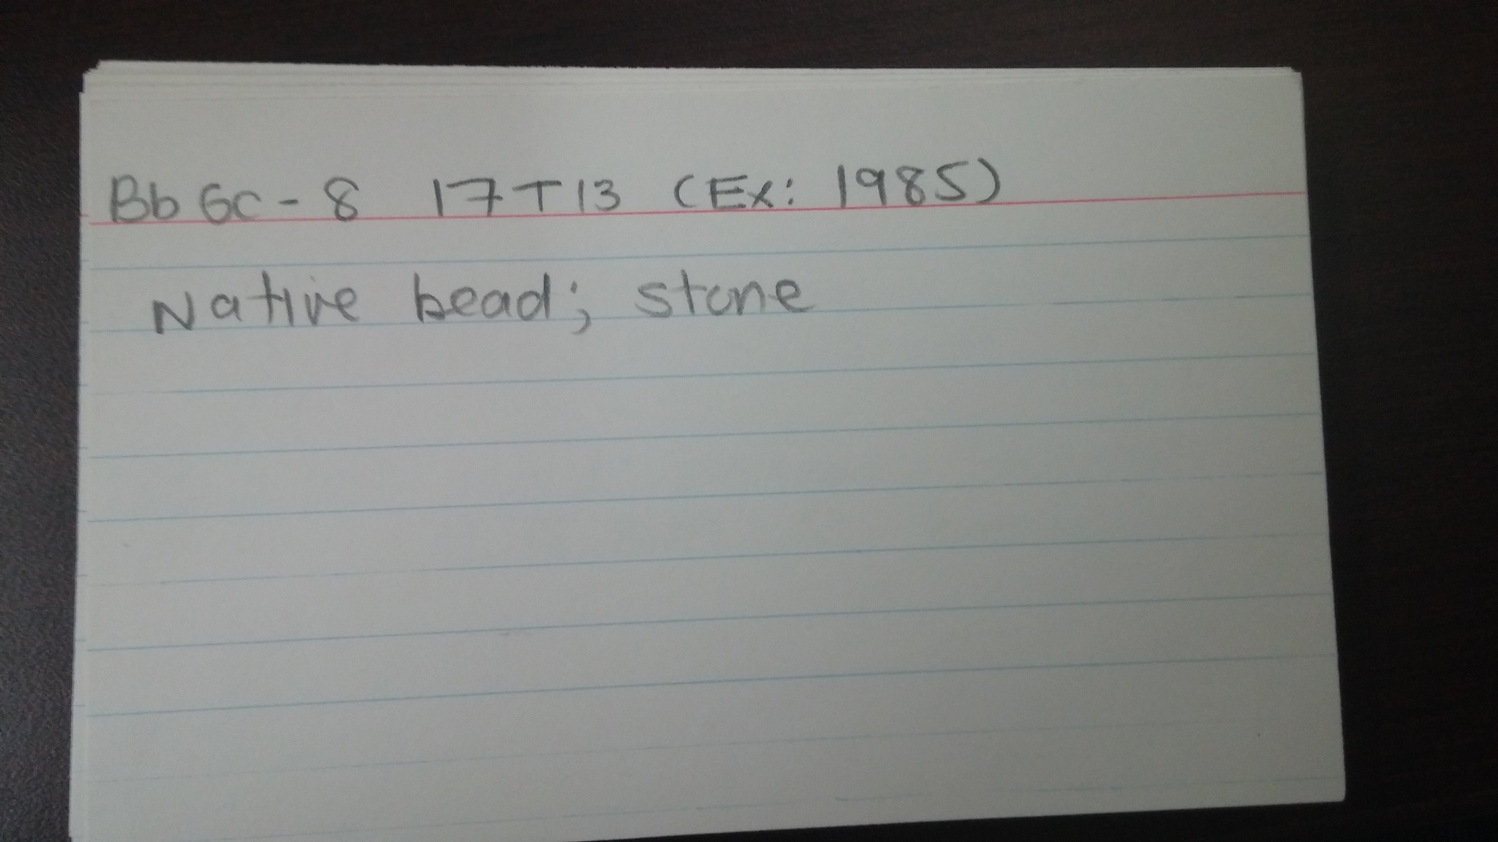 BbGc-8 17T13 (Ex: 1985)
Native bead; stone